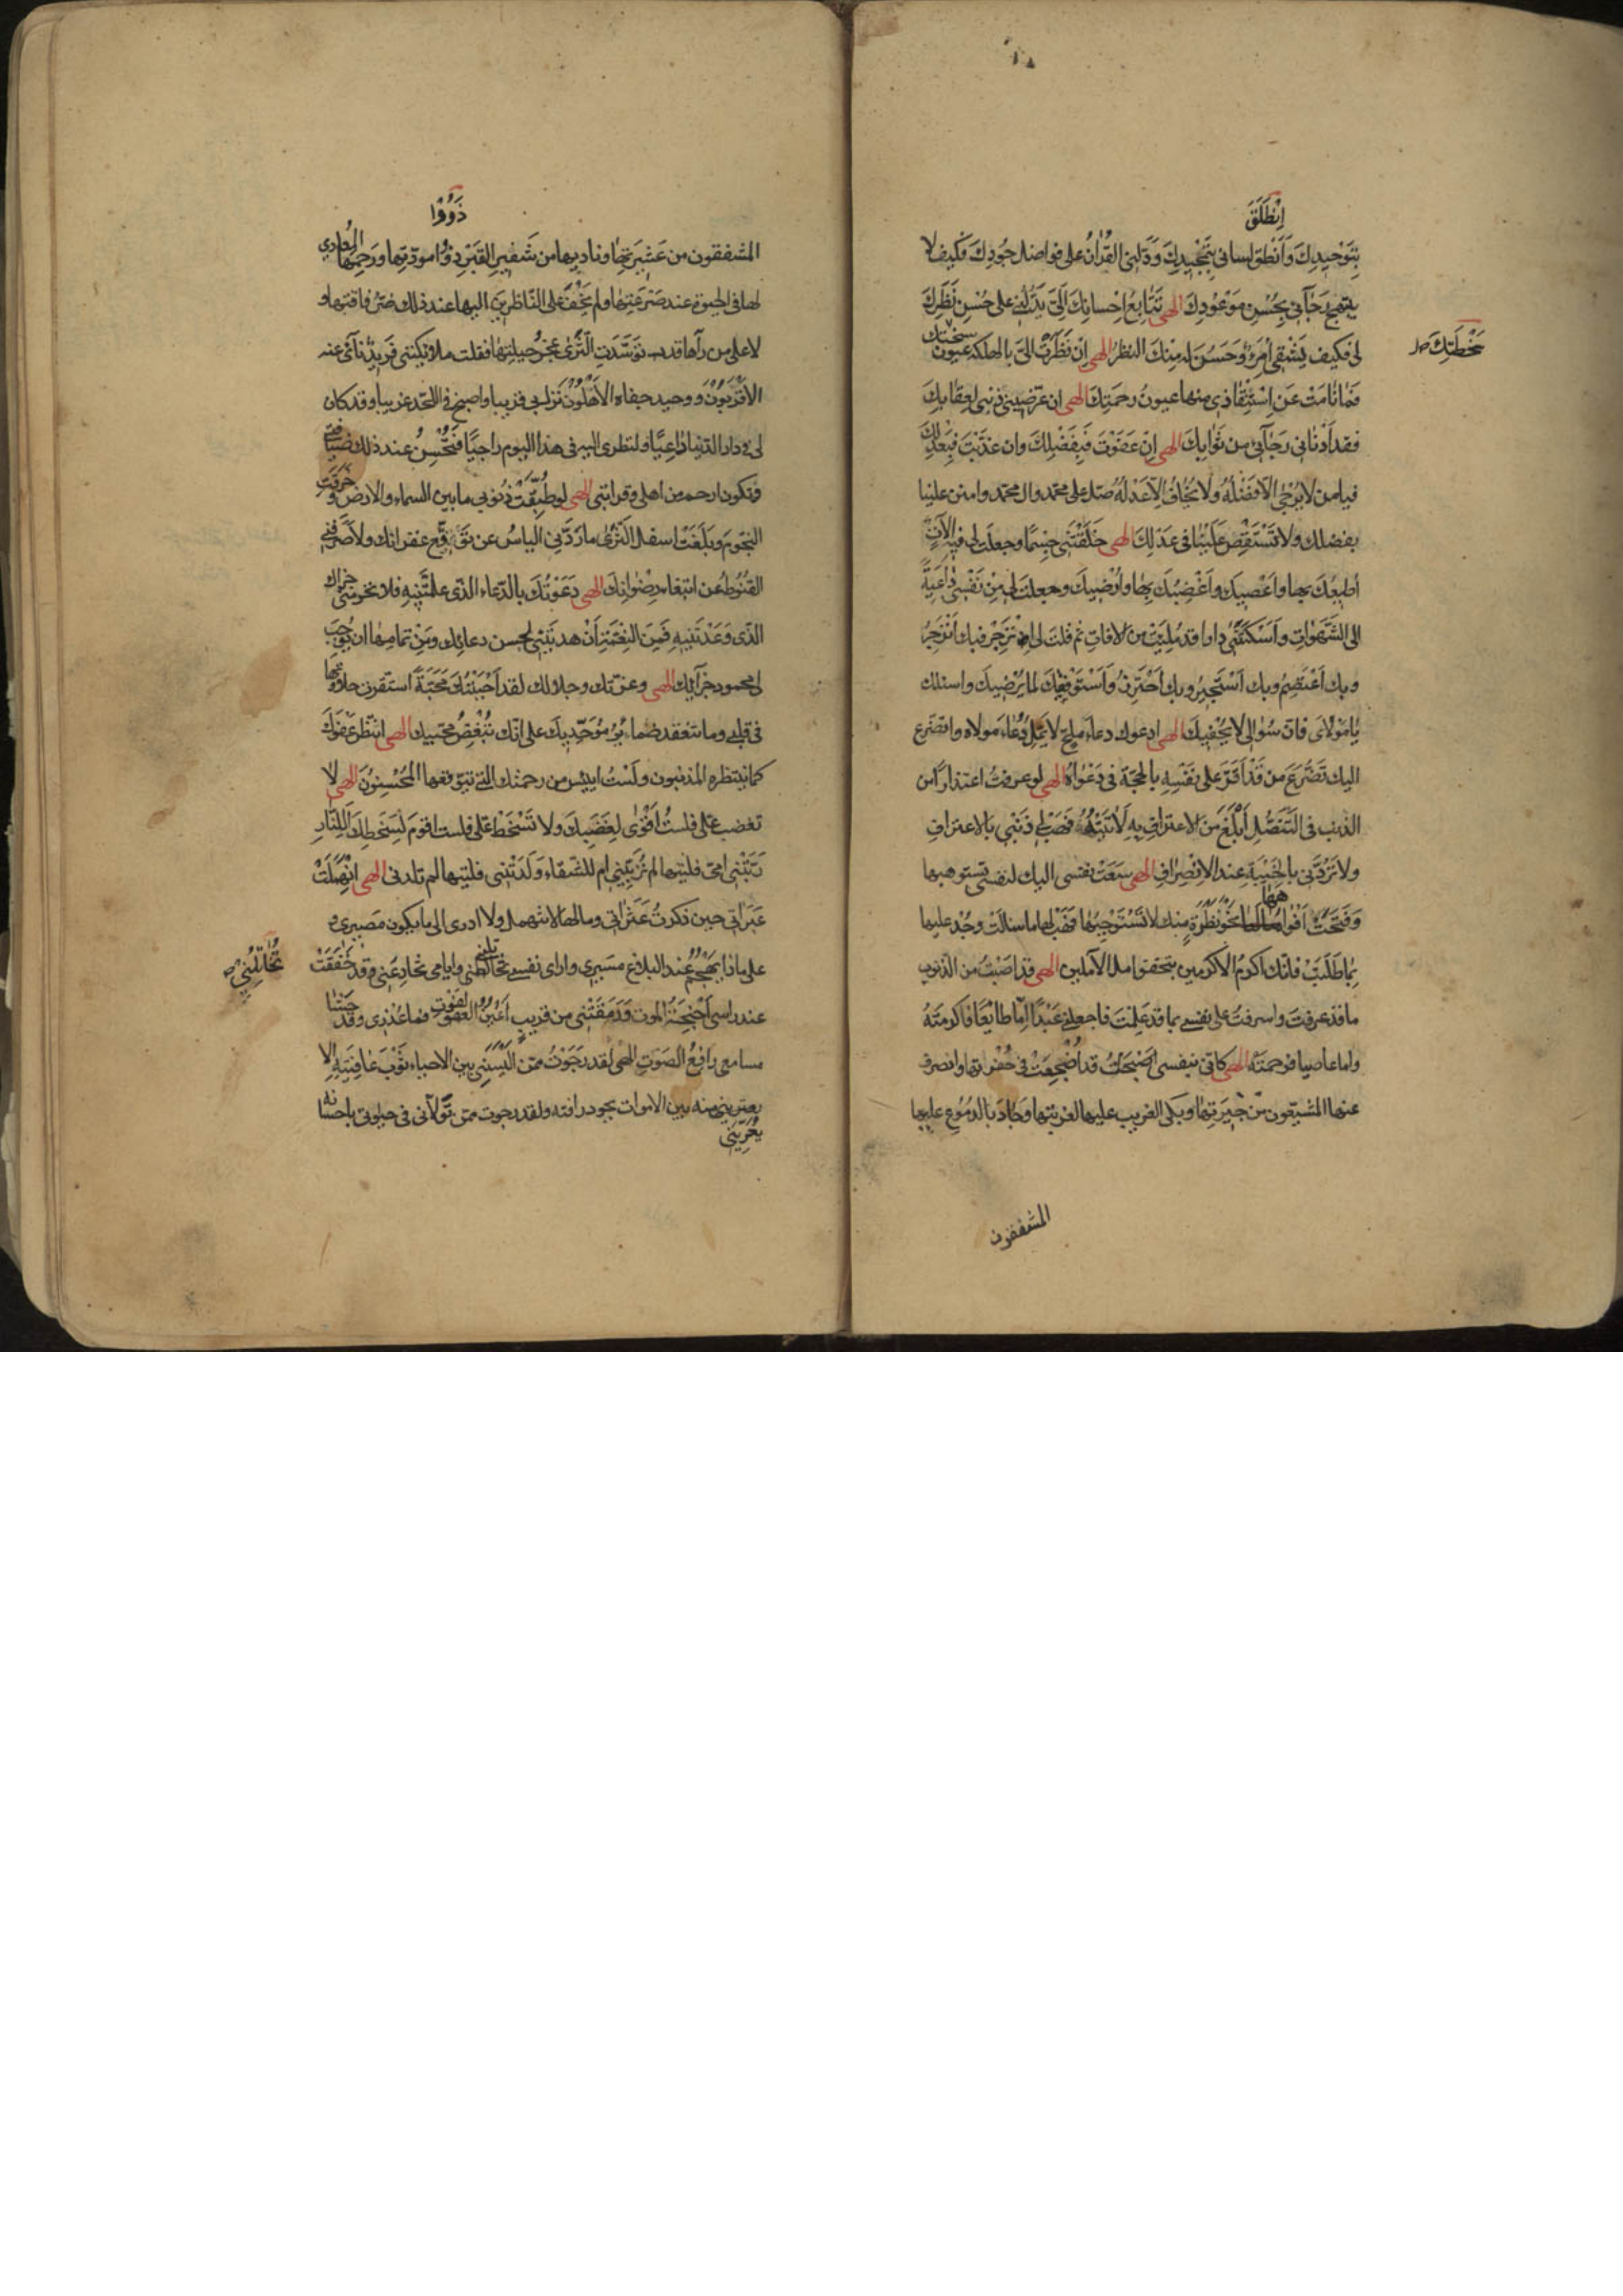 اِنْطَلَقَ
بِتَوْحیدِكَ وَاَنْطَقَ لسانی بِتَمْجیدِكَ وَدَلَّنِی القُرْاٰنُ علی فواضل جُودِكَ فكیف لا
یبتهج رَجٰآئی بِحُسْنِ مَوْعُودِكَ الهی تَتٰابُعُ اِحْسانِكَ اِلَیَّ یَدُلُّنی علی حُسْنِ نَظَرِكَ
لی فكیف یَشْقی اَمْرُؤٌ حَسُنَ لَهُ مِنْكَ النظرُ الهی اِنْ نَظَرَتْ اِلَیَّ بالهلكة عیون سخطتك
سَخْطَتِكَ
فَمٰا نٰامَتْ عَنِ اسْتِنْقٰاذی منها عیونُ رحمَتِكَ الهی ان عرّضنی ذنبی لِعِقٰابِكَ
فقد اَدْنٰانی رَجٰآئی من ثَوٰابِكَ الهی اِنْ عَفَوْتَ فَبِفَضْلِكَ وان عذّبْتَ فَبِعَدْلِكَ
فیامن لا یُرْجٰی اِلّا فَضْلُهُ ولا یُخٰافُ اِلّا عَدْلُهُ صلّ علی محمّد وال محمّد وامنن علینا
بفضلك ولا تَسْتَقْصِ عَلَیْنٰا فی عَدْلِكَ الهی خَلَقْتَنی جِسْمًا وجعلتَ لی فیهِ اٰلاتٍ
اُطیعُكَ بها واَعْصیكَ واُغْضِبُكَ بِهٰا واُرْضیكَ وجعلتَ لی مِنْ نَفْسی دٰاعِیَةً
الی الشَّهَوٰاتِ وَاَسْكَنْتَنی دارا قد مُلِئَتْ من الافاتِ ثم قلت لی اِنْزَجِرْ فبك اَنْزَجِرُ
وبك اَعْتَصِمُ وبك اَسْتَجیرُ وبِكَ اَحْتَرِزُ وَاَسْتَوْفِقُكَ لما یُرْضیكَ واسئلك
یٰا مَوْلاٰیَ فانّ سُؤالی لا یُحْفیكَ الهی ادعوك دعاءَ مُلِحٍّ لا یَمِلُّ دُعٰاءَ مولاه واتضرّع
الیك تَضَرُّعَ من قَدْ اَقَرَّ علی نَفْسِهِ بالحجّة فی دَعْوٰاهُ الهی لو عرفتُ اعتذارًا من
الذنب فی التَنَصُّلِ اَبْلَغَ مِنَ الاعترافِ بِهِ لَاَتَیْتُهُ فَهَبْ لی ذَنْبی بالاعترافِ
ولا تَرُدَّنی بِالخَیْبَةِ عند الاِنْصِرٰافِ الهی سَعَتْ نفسی الیك لنفسی تستوهبها
وَفَتَحَتْ اَفْوٰاهَ اٰمٰالِهٰا نحو نَظْرَةٍ مِنْك لا تَسْتَوْجِبُهٰا فَهَبْ لها ما سالَتْ وجُدْ علیها
بِمٰا طَلَبَتْ فانّك اكرمُ الاكرمین بتحقیق امل الآملین الهی قد اصبتُ من الذنوب
ما قد عرفتَ واسرفتُ علی نفسی بما قد عَلِمْتَ فاجعلنی عَبْدًا اِمّا طائِعًا فاكرمتَهُ
واما عاصیا فرحمتَهُ الهی كانّی بنفسی اَصْبَحَتْ قد اُضْجِعَتْ فی حُفْرَتِها وانصرف
عنها المشیّعون من جیرَتِهٰا وبكی الغریب علیها لغربتها وَجٰادَ بالدمُوعِ علیها
المشفقون
ذَوُوا
المشفقون من عَشیرَتِهٰا وناداها من شَفیرِ القَبْرِ ذوُا مودّتِها ورَحِمَها المُعٰادی
لها فی الحیوةِ عند صَرْعَتِهٰا ولم یَخْفَ علی النّاظرینَ الیها عند ذلك ضُرُّ فاقتها و
لا علی من رآها قد توسَّدَتِ الثَّرٰی عَجْزُ حیلتِهٰا فقلت ملائكتی فَریدٌ نَآئ عنه
الاَقْرَبُوْنَ و وحید جفاه الاَهْلُونَ نَزَل بی قریبا واصبح فی اللّحد غریبا وقد كان
لی فی دار الدنیا دٰاعِیًا ولنظری الیه فی هذا الیوم راجیًا فَتُحْسِنُ عند ذلك ضیٰافتی
وتكون ارحم من اهلی وقرابتی الهی لو طَبَّقَتْ ذُنوبی ما بین السماء والارض وخَرَقَتِ
النجُومَ وبَلَغَتْ اسفل الثَّرٰی ما رَدَّنِی الیاسُ عن تَوَقُّعِ غفرانك ولا صرفنی
القُنُوطُ عن ابتغاء رِضْوٰانِكَ الهی دَعَوْتُكَ بالدّعاء الذّی علّمْتَنِیهِ فلا تحرمنی جزاك
الذّی وَعَدْتَنِیهِ فَمِنَ النِعْمَةِ اَنْ هدیتَنی لحسن دعائِك ومِنْ تمامِهٰا ان تُوجِبَ
لی محمودَ جَزَآئِكَ الهی وعزّتك وجلالك لقد اَحْبَبْتُكَ مَحَبَّةً استقرت حلاوتُهٰا
فی قلبی وما تنعقد ضمائِرُ مُوَحِّدیكَ علی انّك تُبْغِضُ محبّیك الهی انتظر عَفْوَكَ
كما ینتظره المذنبون ولَسْتُ ایئسُ من رحمتك التی یتوقعها المُحْسِنُونَ الهی لا
تغضب علیّ فلستُ اَقْوٰی لِغَضَبِكَ ولا تَسْخَطْ علیّ فلست اقومُ لِسَخَطِكَ اَلِلنّارِ
رَبَّتْنی امّی فلیتها لم تُرَبِّنی ام للشّقاء وَلَدَتْنی فلیتها لم تلدنی الهی انْهَمَلَتْ
عَبَراتی حین ذكرتُ عَثَرٰاتی ومالها لا تنهمل ولا ادری الی ما یكون مَصیری و
علی ماذا یَهْجُمُ عند البلاغ مسیری واری نفسی تخاتلنی وایامی تخادِعُنی وقد خَفَقَتْ
تُخٰاتِلُنی
عند راسی اَجْنِحَةُ الموت وَرَمَقَتْنی من قریبٍ اَعْیُنُ الفَوْتِ فما عُذْری وقد حَشٰا
مسامعی رافِعُ الصَوْتِ الهی لقد رَجَوْتُ ممّن اَلْبَسَنی بین الاحیاء ثَوْبَ عٰافِیَتِهِ اَلّا
یعرینی منه بین الاموات بجود رافته ولقد رجوت ممن تَوَلّانی فی حیوتی باحسانه
یُعَرِّیَنی